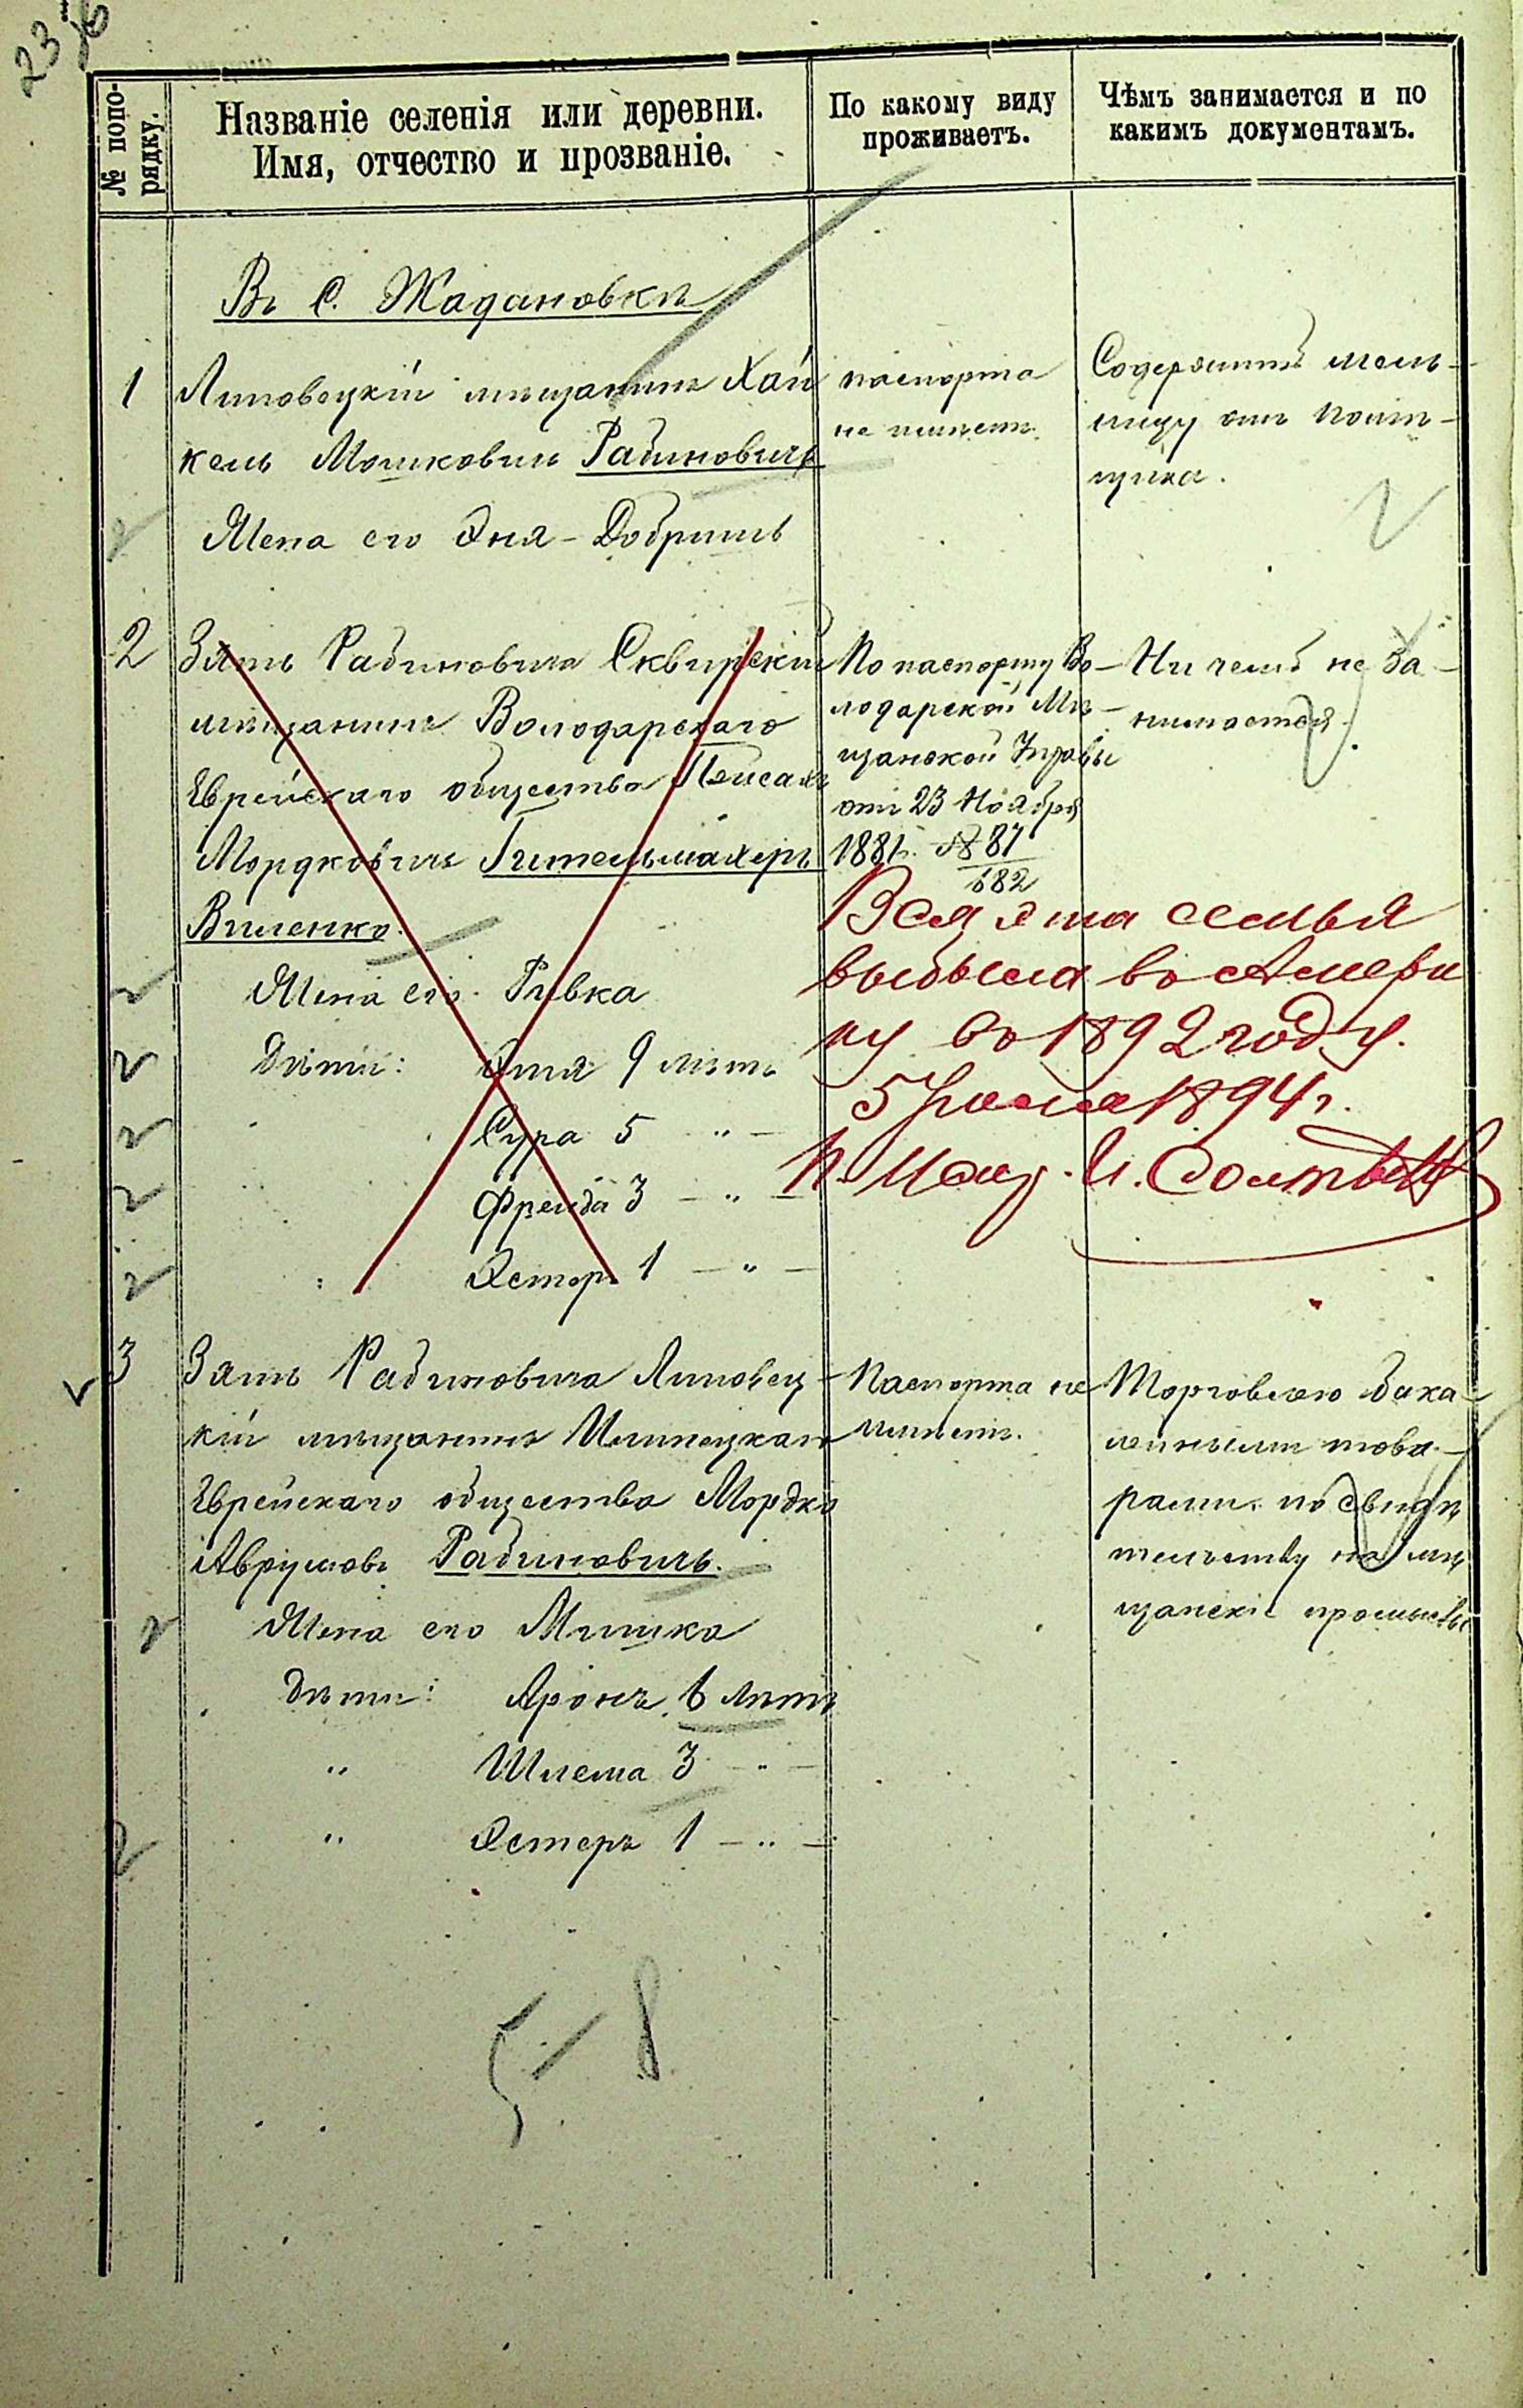 23
№ попо-
рядку.
Названіе селенія или деревни.
Имя, отчество и прозваніе.
По какому виду
проживаетъ.
Чѣмъ занимается и по
какимъ документамъ.
Въ С. Жадановкѣ
1
Липовецкій мѣщанинъ Хай
кель Мошковичъ Рабиновичъ
Жена его Эня-Добришъ
паспорта
не имѣетъ.
Содержитъ мель-
ницу отъ помѣ-
щика.
2
Зять Рабиновича Сквирскій
мѣщанинъ Володарскаго
Еврейскаго общества Пейсахъ
Мордковичъ Гительмахеръ
Виленко.
Жена его Ривка
Дѣти: Этя 9 лѣтъ
Сура 5 " —
Фрейда 3 — " —
Эстеръ 1 — " —
По паспорту Во-
лодарской Мѣ-
щанской Управы
отъ 23 Ноября
1881г. № 87
682
Ни чемъ не за-
нимается.
Вся эта семья
выбыла въ Амери
ку въ 1892 году.
5 1894 г.
3
Зять Рабиновича Липовец-
кій мѣщанинъ Илинецкаго
Еврейскаго общества Мордко
Аврумовъ Рабиновичъ.
Жена его Мишка
Дѣти: Аронъ 6 лѣтъ
" Шлема 3 — " —
" Эстеръ 1 — " —
Паспорта не
имѣетъ.
Торговлею бака-
лейными това-
рами по свидѣ
тельству на мѣ
щанскіе промыслы
5 / 8